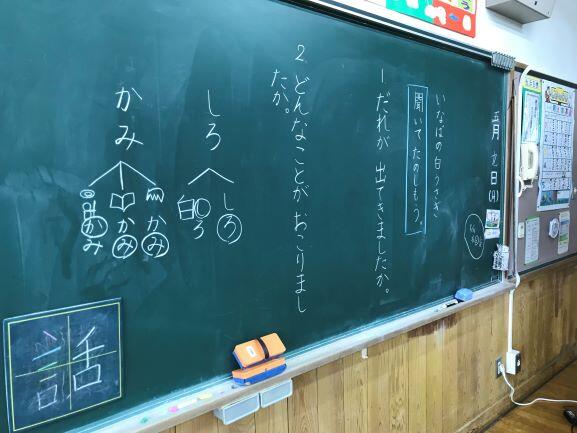 五月
日(月)
いなばの白うさぎ
聞いてたのしもう。
1 だれが 出てきましたか。
2 どんなことが おこりまし
たか。
しろ
しろ
白
かみ
かみ
かみ
かみ
話